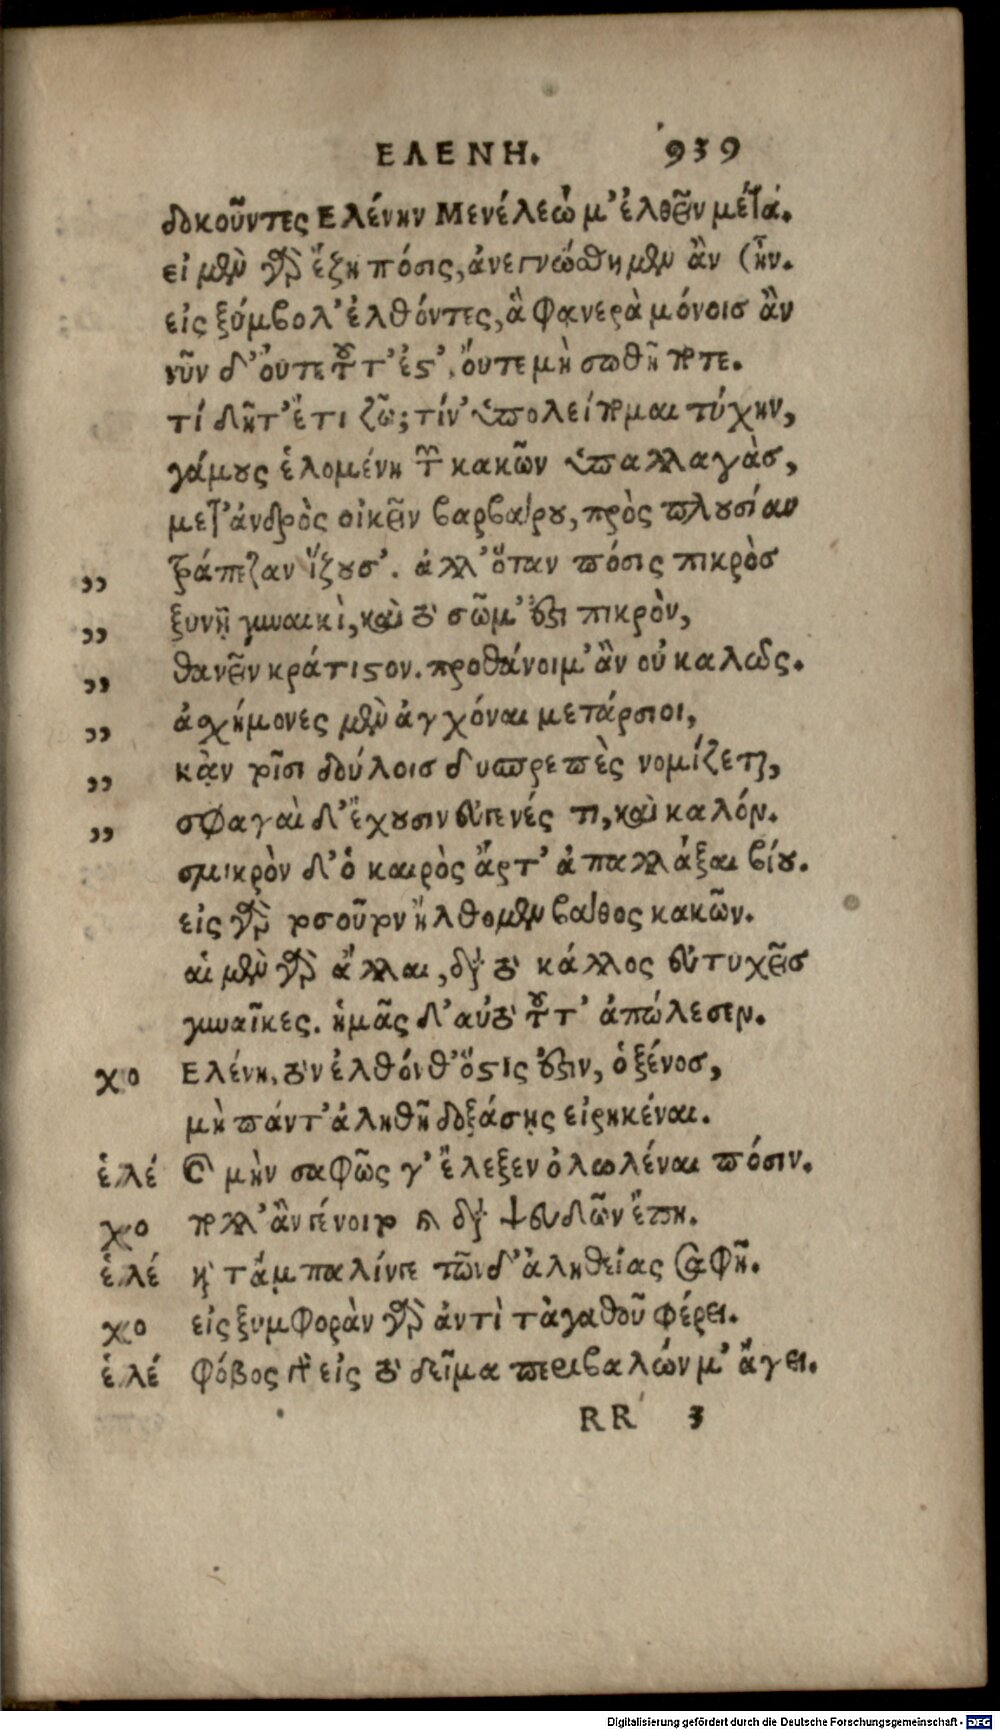 ΕΛΕΝΗ. 939
δοκοῦντες Ελένην Μενέλεώ μ' ἐλθεῖν μέτα.
εἰ μὲν γὰρ ἔζη πόσις, ἀνεγνώσθημεν ἂν
εἰς ξύμβολ' ἐλθόντες, ἃ φανερὰ μόνοις ἂν ἦν.
νῦν δ' οὔτε τοῦτ' ἐστ', οὔτε μὴ σωθῇ ποτε.
τί δῆτ' ἔτι ζῶ; τίν' ὑπολείπομαι τύχην,
γάμους ἑλομένη τῶν κακῶν ὑπαλλαγὰς,
μετ' ἀνδρὸς οἰκεῖν βαρβάρου, πρὸς πλουσίαν
,, τράπεζαν ἵζουσ'. ἀλλ' ὅταν πόσις πικρὸς
,, ξυνῇ γυναικὶ, καὶ τὸ σῶμ' ἐστι πικρὸν,
,, θανεῖν κράτιστον. προθάνοιμ' ἂν οὐ καλῶς.
,, ἀσχήμονες μὲν ἀγχόναι μετάρσιοι,
,, κᾂν τοῖσι δούλοις δυσπρεπὲς νομίζεται,
,, σφαγαὶ δ' ἔχουσιν εὐγενές τι, καὶ καλόν.
σμικρὸν δ' ὁ καιρὸς ἄρτ' ἀπαλλάξαι βίου.
εἰς γὰρ τοσοῦτον ἤλθομεν βάθος κακῶν.
αἱ μὲν γὰρ ἄλλαι, διὰ τὸ κάλλος εὐτυχεῖς
γυναῖκες. ἡμᾶς δ' αὐτὸ τοῦτ' ἀπώλεσεν.
χο Ελένη, τὸν ἐλθόνθ' ὅστις ἐστιν, ὁ ξένος,
μὴ πάντ' ἀληθῆ δοξάσῃς εἰρηκέναι.
ἑλέ καὶ μὴν σαφῶς γ' ἔλεξεν ὀλωλέναι πόσιν.
χο πολλ' ἂν γένοιτο καὶ διὰ ψευδῶν ἔπη.
ἑλέ ἢ τἄμπαλίν γε τῶνδ' ἀληθείας σαφῆ.
χο εἰς ξυμφορὰν γὰρ ἀντὶ τἀγαθοῦ φέρει.
ἑλέ φόβος γὰρ εἰς τὸ δεῖμα περιβαλών μ' ἄγει.
RR 3
Digitalisierung gefördert durch die Deutsche Forschungsgemeinschaft - DFG